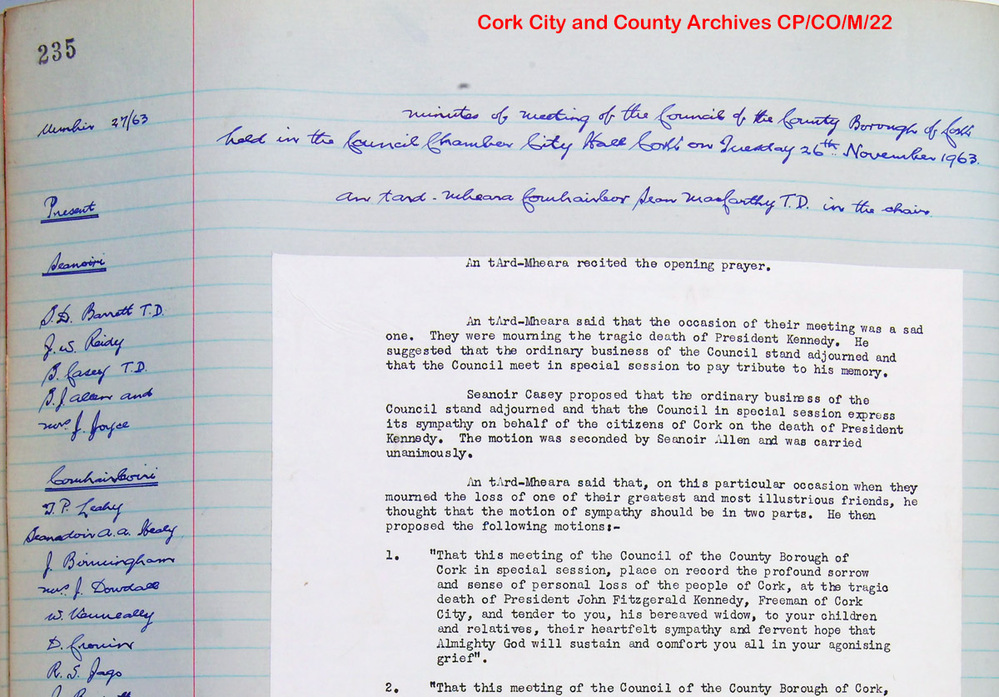 Cork City and County Archives CP/CO/M/22
235
Number 27/63
minutes of meeting of the Council of the County Borough of Cork
held in the Council Chamber City Hall Cork on Tuesday 26th November 1963.
An tard-mheara Comhairleoir Sean MacCarthy T.D. in the chair
Present
Seanoiri
S.D. Barrett T.D.
J. W. Reidy
S. Casey T.D.
S. J Allen and
Mrs J. Joyce
Comhairleoiri
T. P. Leahy
Seanadoir A. A. Healy
J. Bermingham
Mrs J. Dowdall
W. Kenneally
D. Cronin
R. S. Jago
An tArd-Mheara recited the opening prayer.
An tArd-Mheara said that the occasion of their meeting was a sad
one. They were mourning the tragic death of President Kennedy. He
suggested that the ordinary business of the Council stand adjourned and
that the Council meet in special session to pay tribute to his memory.
Seanoir Casey proposed that the ordinary business of the
Council stand adjourned and that the Council in special session express
its sympathy on behalf of the citizens of Cork on the death of President
Kennedy. The motion was seconded by Seanoir Allen and was carried
unanimously.
An tArd-Mheara said that, on this particular occasion when they
mourned the loss of one of their greatest and most illustrious friends, he
thought that the motion of sympathy should be in two parts. He then
proposed the following motions:-
1. "That this meeting of the Council of the County Borough of
Cork in special session, place on record the profound sorrow
and sense of personal loss of the people of Cork, at the tragic
death of President John Fitzgerald Kennedy, Freeman of Cork
City, and tender to you, his bereaved widow, to your children
and relatives, their heartfelt sympathy and fervent hope that
Almighty God will sustain and comfort you all in your agonising
grief".
2. "That this meeting of the Council of the County Borough of Cork,